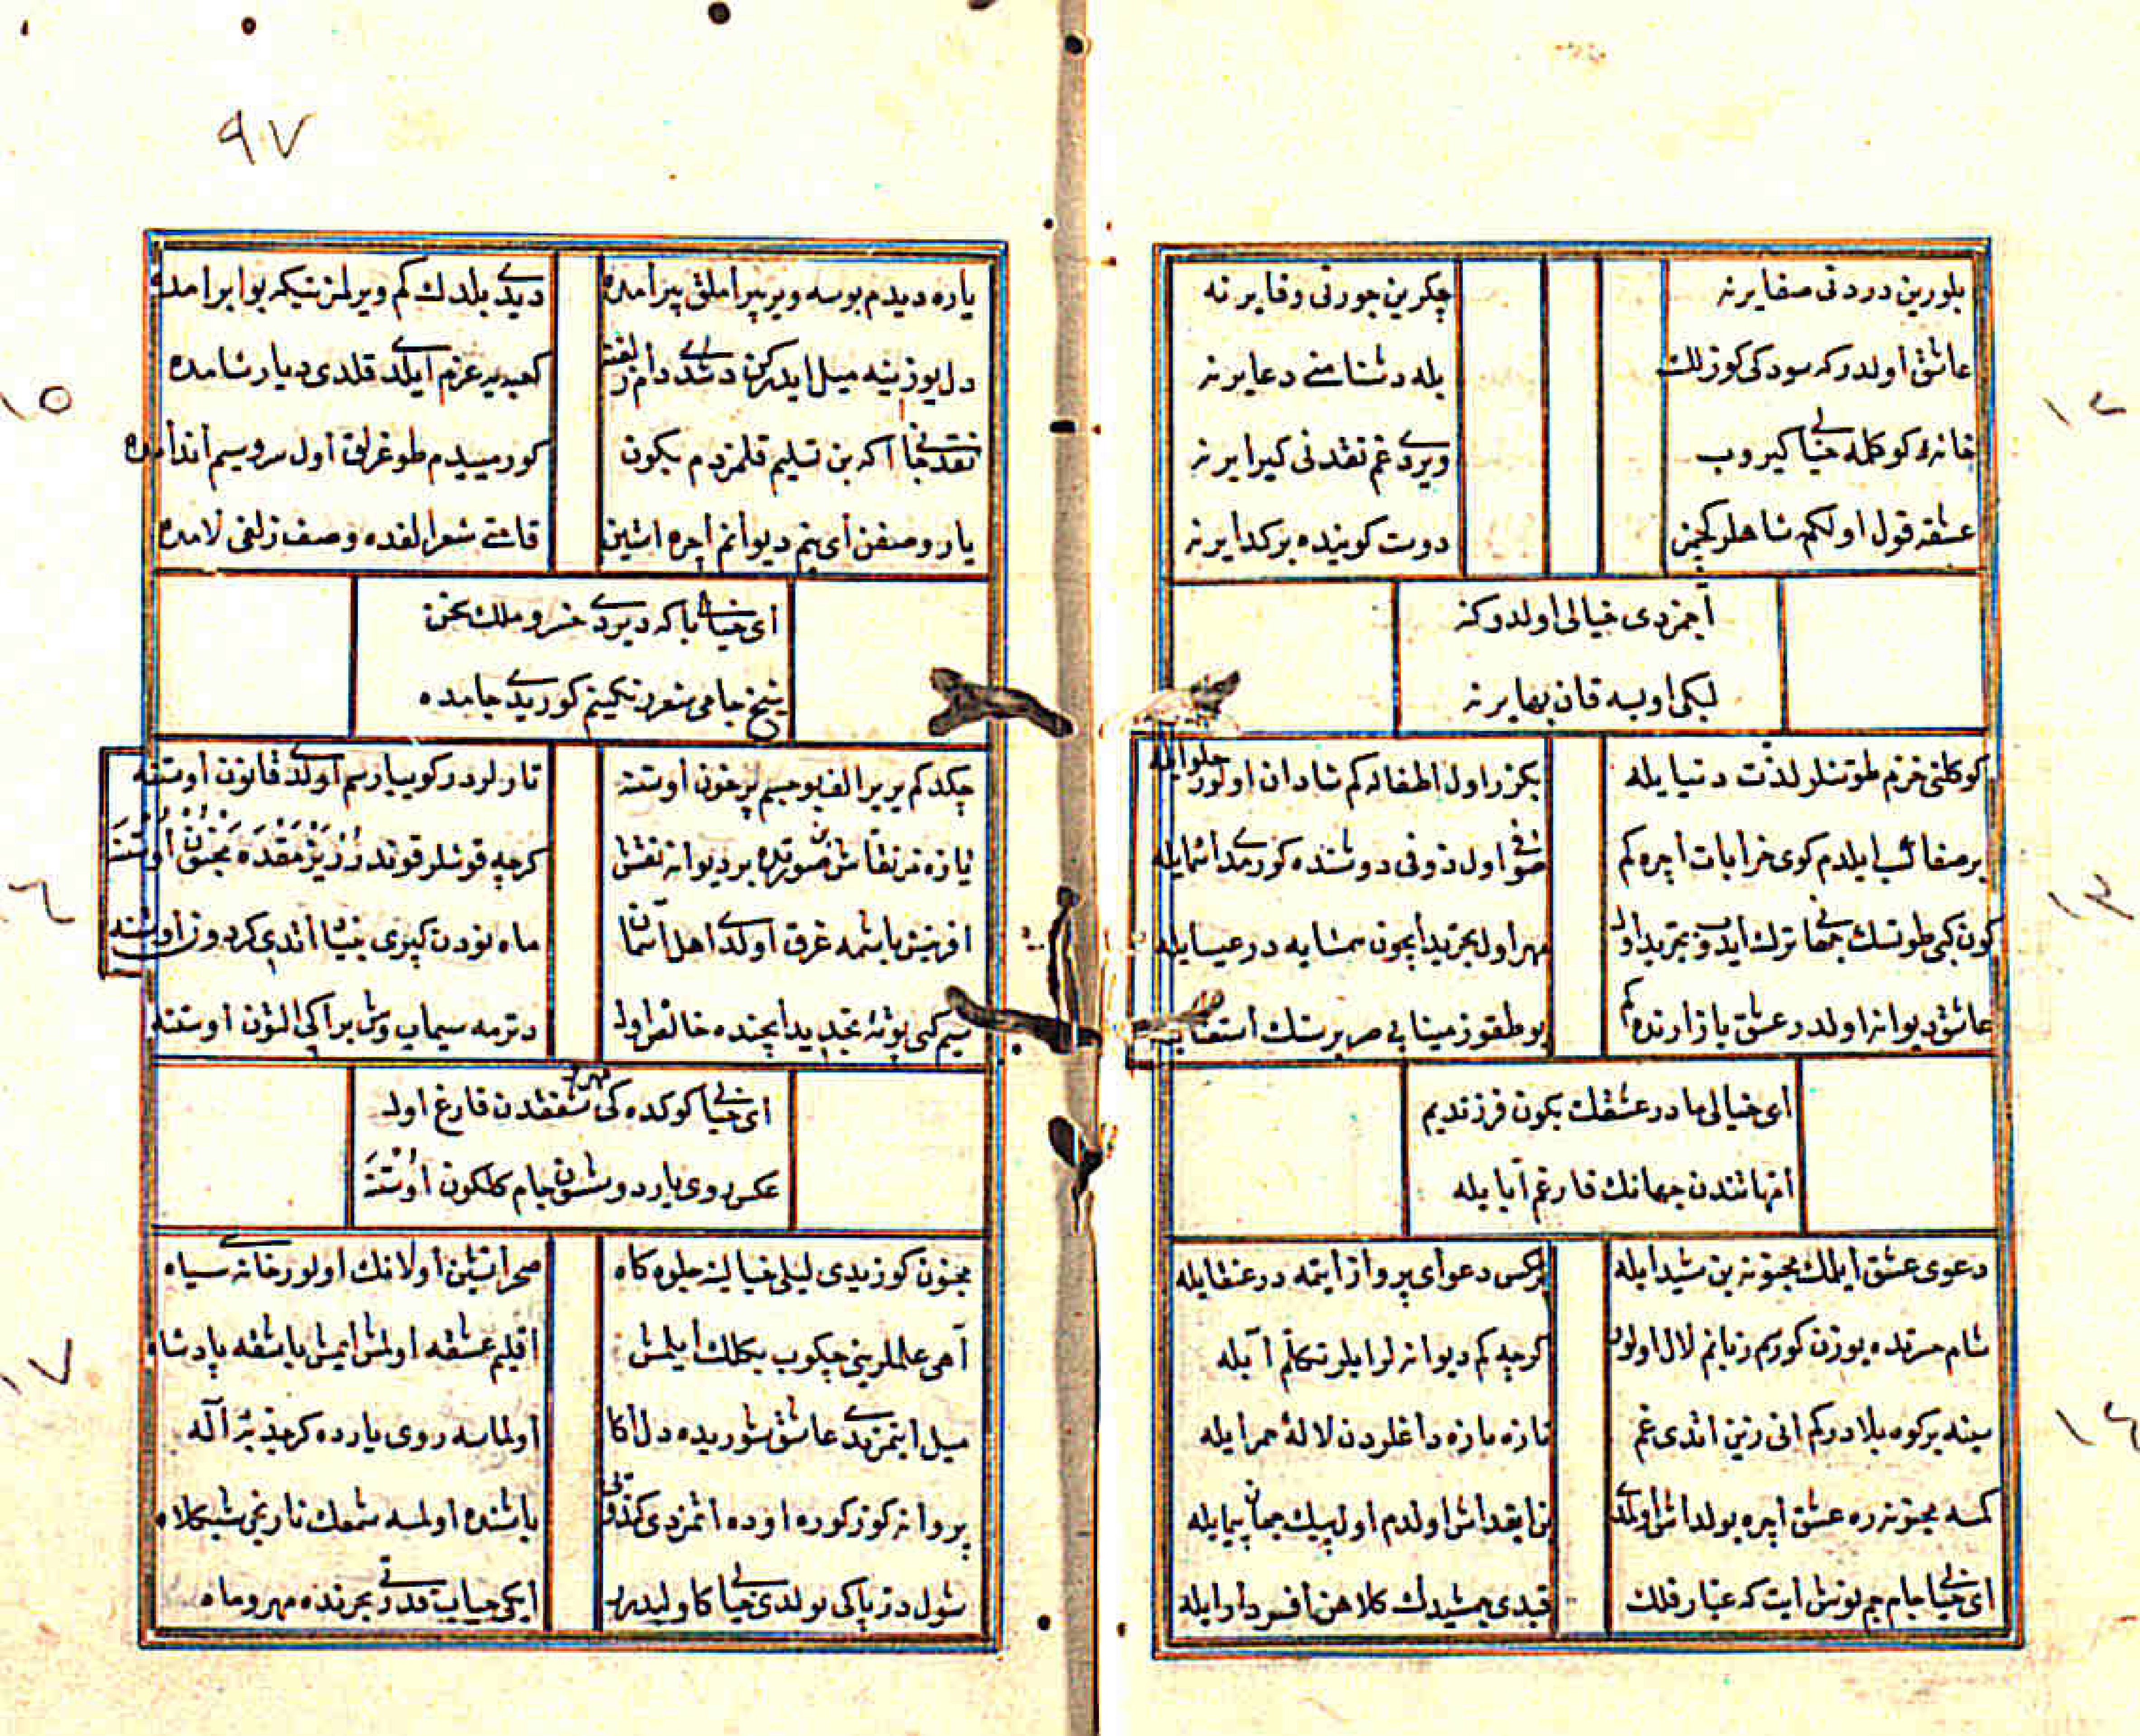 بلورین دردنی صفا یرنه
چکرین جورنی وفا یرنه
عاشق اولدر که سودکی کوزلك
بله دشنامنی دعا یرنه
خانهٔ کوکلمه خیالی کیروب
ویردی غم نقدنی کیرا یرنه
عشقه قول اولکم شاهلر کچنر
دوست کوینده بر کدا یرنه
آچمزدی خیالی اولدوکنه
لبکی اوبسه قان بها یرنه
کوکلنی خرم طوتنلر لذت دنیایله
بکزر اول اطفاله کم شادان اولور حلوا ایله
بر صفا کسب ایلدم کوی خرابات اچره کم
صوفی اول ذوقی دوشنده کورمدی اثمایله
کون کبی طوتسك جهانی ترك ایدوب تجرید اول
مهر اول تجرید ایچون همسایه در عیسایله
عاشق دیوانه اولدر عشق بازارنده کم
بو طقوز مینایی صر بر سنك استغنا
ای خیالی مادر عشقك بکون فرزندیم
امهاتندن جهانك فارغم آبایله
دعوی عشق ایلمك مجنونه بن شیدایله
کرکس دعوای پرواز ایتمه در عنقایله
شام حسرتده یوزن کورسم زبانم لال اولور
کرچه کم دیوانه لر ایلر تکلم آیله
سینه بر کوه بلادر کم انی زین اتدی غم
تازه تازه داغلردن لالهٔ حمرایله
کمسه مجنونه ره عشق اچره یولداش اولمدی
بن ایقداش اولدم اول پیك جهان پیمایله
ای خیالی جام جم نوش ایت که غبار فلك
قبدی جمشیدك کلاهن افسر دارایله
٩٧
یاره دیدم بوسه ویر پیراملق پیرامده
دیدی بلدك کم ویرلمز نیکه بوابرامده
دل یوزینه میل ایدرکن دشدی دام زلفنه
کعبه یه عزم ایلدی قلدی دیار شامده
نقد جانی اکه بن تسلیم قلمزدم بکون
کورمییدم طوغرلق اول سرو سیم اندامده
یار وصفن ای بنم دیوانم اچره استین
قامتی شعر الفده وصف زلفی لامده
ای خیالی باکه دیردی خسرو ملك سخن
شیخ جامی شعر رنکینم کوریدی جامده
چکدکم بربر الف بو جسم پر خون اوستنه
تارلردر کوییا رسم اولدی قانون اوستنه
تازه در نقاش صورتده بر دیوانه نقش
کرچه قوشلر قوندرر یزمقده مجنون اوستنه
افرینش یاشمه غرق اولدی اهل آسمان
ماه نودن کپزی بنیاد اتدی کردون اوستنه
سیم کبی پوتهٔ تجدید ایچنده خالص اول
دترمه سیماب وش بر ایکی التون اوستنه
ای خیالی کوکده کی مهر شفقدن فارغ اول
عکس روی یار دوشسون جام کلکون اوستنه
مجنون کوزیدی لیلی خیالینه جلوه کاه
صحرا نشین اولانك اولور خانه سی سیاه
آهی علملرینی چکوب بکلك ایلمش
اقلیم عشقه اولمش ایمش باشقه پادشاه
میل ایتمزیدی عاشق شوریده دل اکا
اولماسه روی یارده کرچه بر آله
پروانه کوز کوره اوده اتمزدی کندونی
باشنده اولمسه شمعك نارنجی شبکلاه
شول در پاکی بولدی خیالی کا ولیدر
ایکی حباب قدرتی بحرنده مهر و ماه
١٢
١٣
١٤
١٥
١٦
١٧